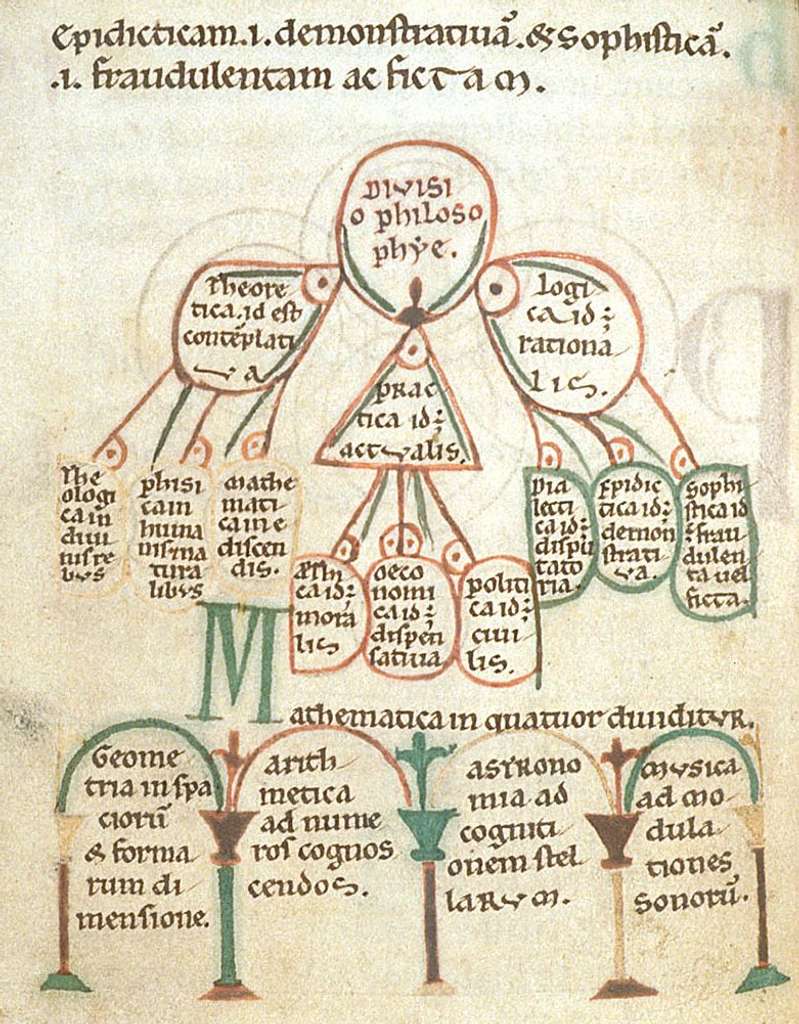 epidicticam.i.demonstratiuā.&Sophisticā.
.i. fraudulentam ac fictam.
DIVISI
o philoso
phẏe.
Theore
tica.id est
contēplati
va
practica
tica id:
actvalis.
Logi
ca id:
rationa
lis.
The
ologi
ca in
diui
nis re
bvs
phisi
ca in
huma
nis na
tura
libvs
mathe
mati
ca in e
discen
dis.
Æthi
ca id:
mora
lis
oeco
nomi
ca id:
dispen
satiua
politi
ca id:
ciui
lis.
Dia
lecti
ca id:
dispu
tato
ria.
Epidic
tica id:
demon
strati
va.
Sophi
stica id
:frau
dulen
ta uel
ficta.
Mathematica in quatuor diuiditvr.
Geome
tria in spa
cioruū
& forma
rum di
mensione.
arith
metica
ad nume
ros cognos
cendos.
astrono
mia ad
cogniti
onem stel
larvm.
mvsica
ad mo
dula
tiones
sonorū.